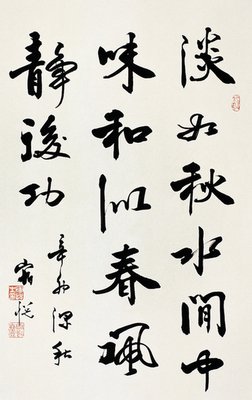 淡如秋水閒中
味和似春風
靜後功
辛卯深秋